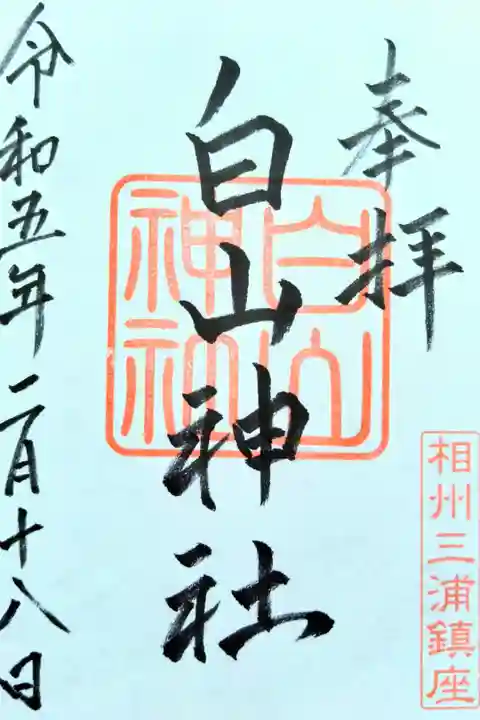 奉拝
相州三浦鎮座
白山神社
白山神社
令和五年二月十八日